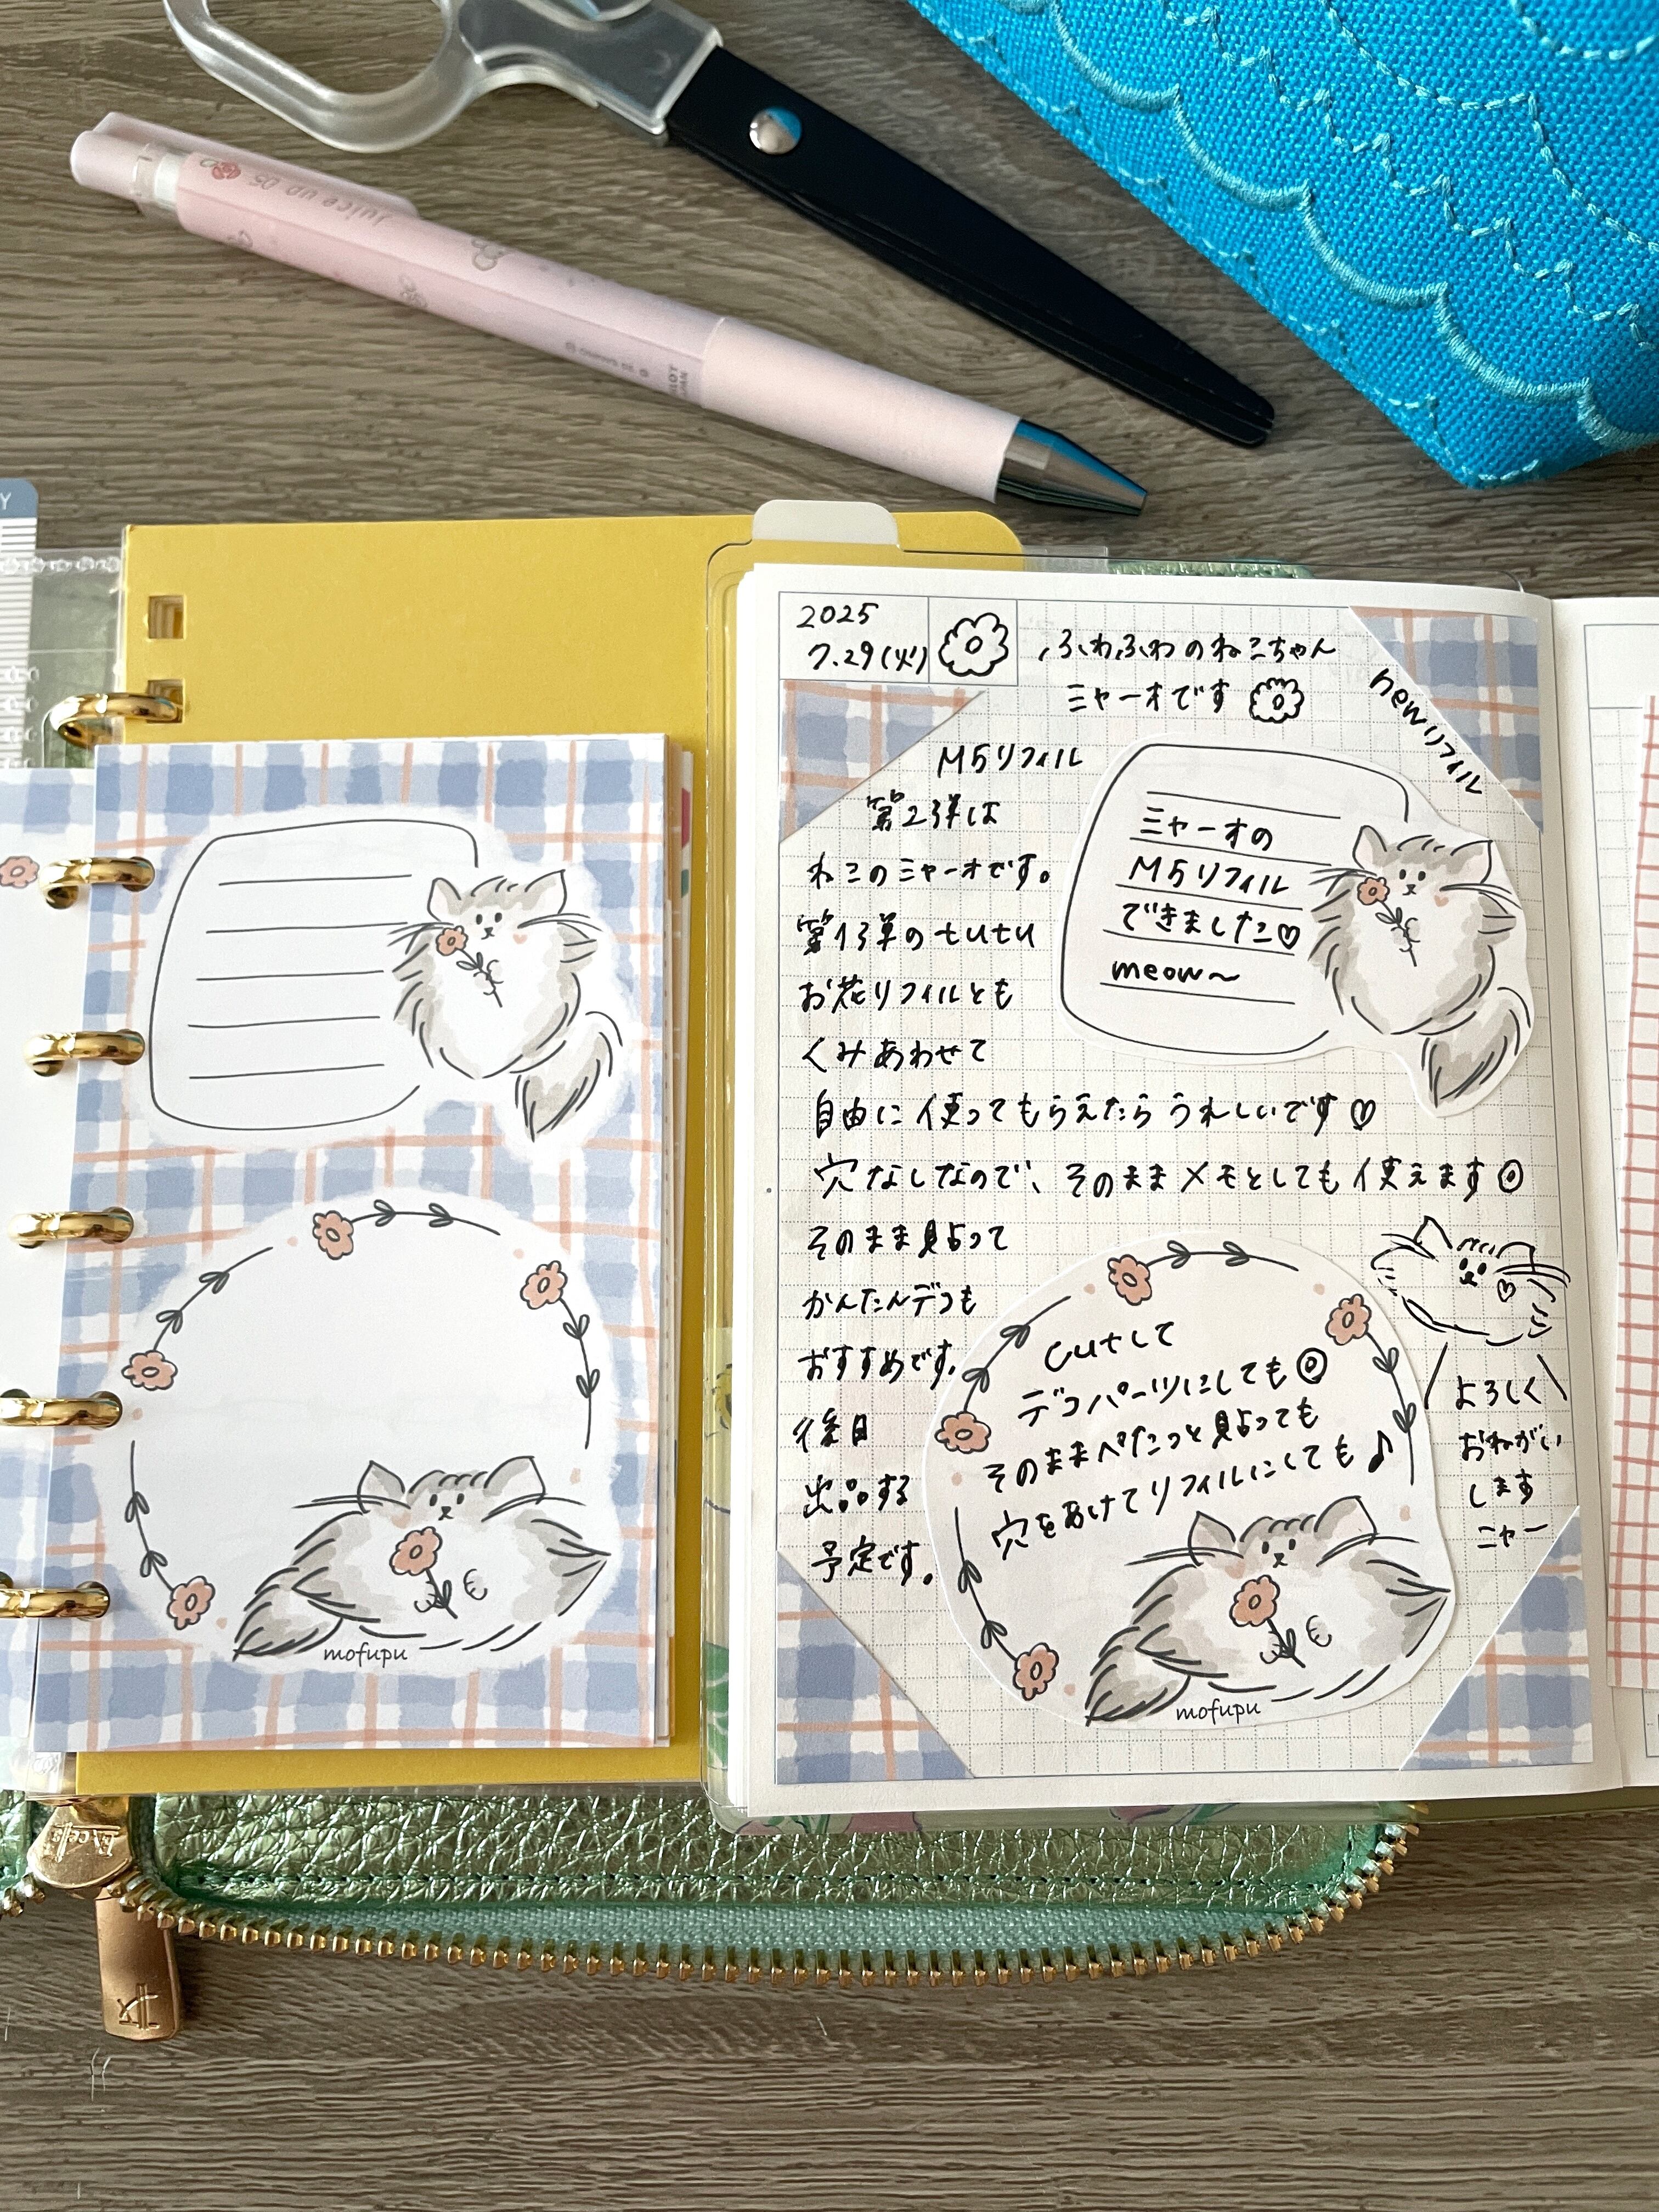 Juice up 05
2025
7.29(火)
ふわふわのねこちゃん
ミャーオです
newリフィル
M5リフィル
第2弾は
ねこのミャーオです。
第1弾のtutu
お花リフィルとも
くみあわせて
自由に使ってもらえたらうれしいです♡
穴なしなので、そのままメモとしても使えます◎
そのまま貼って
かんたんデコも
おすすめです。
後日
出品する
予定です。
ミャーオの
M5リフィル
できました♡
meow~
cutして
デコパーツにしても◎
そのままペたっと貼っても
穴をあけてリフィルにしても♪
mofupu
よろしく
おねがい
します
ニャー
mofupu